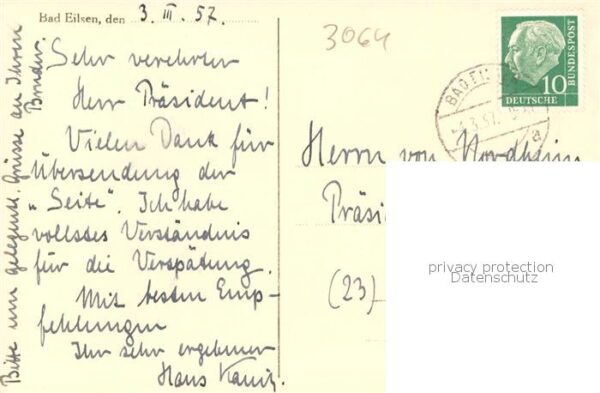 Bad Eilsen, den 3. III. 57.
Sehr verehrter
Herr Präsident!
Vielen Dank für
Übersendung der
„Seite". Ich habe
vollstes Verständnis
für die Verspätung.
Mit besten Emp-
fehlungen
Ihr sehr ergebener
Hans
Bitte um gelegentl. Grüsse an Ihren
Bruder.
3064
DEUTSCHE
BUNDESPOST
10
BAD EILSEN
3.57
a
Herrn von Nordheim
Präsi
(23)
privacy protection
Datenschutz